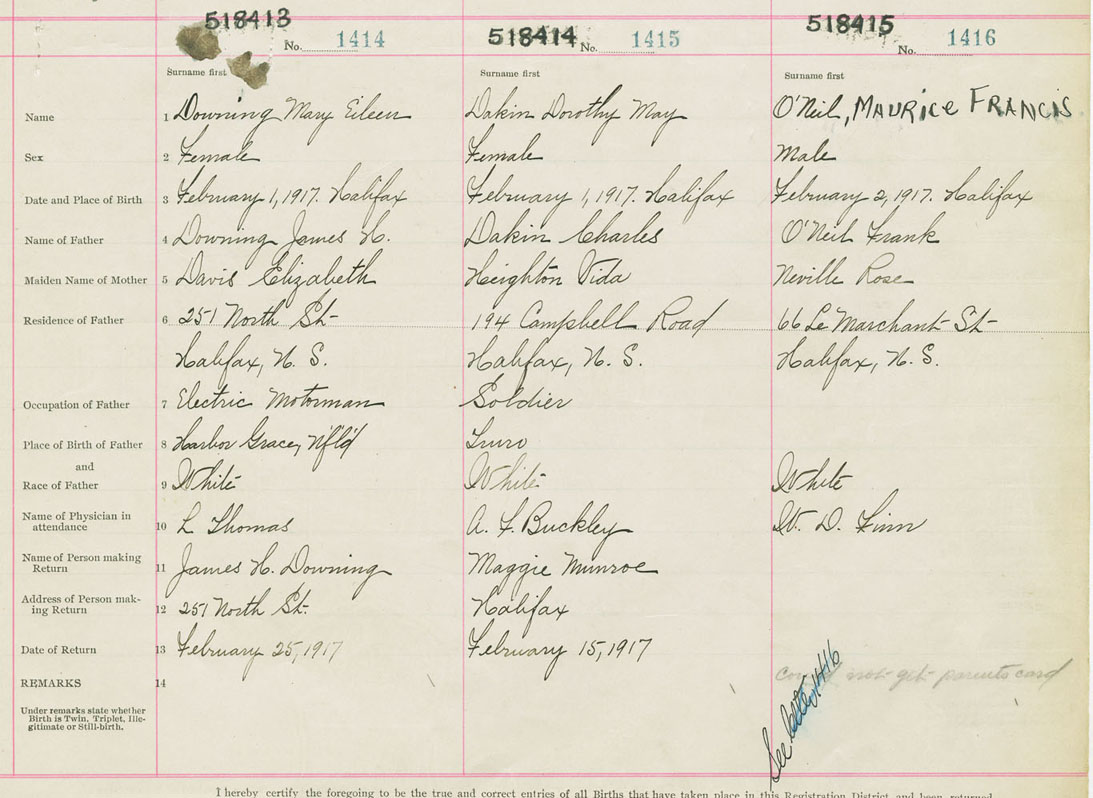 518413 518414 518415
No. 1414 No. 1415 No. 1416
Surname first Surname first Surname first
Name 1 Downing Mary Eileen Dakin Dorothy May O'Neil, MAURICE FRANCIS
Sex 2 Female Female Male
Date and Place of Birth 3 February 1, 1917. Halifax February 1, 1917. Halifax February 2, 1917. Halifax
Name of Father 4 Downing James H. Dakin Charles O'Neil Frank
Maiden Name of Mother 5 Davis Elizabeth Heighton Vida Neville Rose
Residence of Father 6 251 North St 194 Campbell Road 66 Le Marchant St
Halifax, N. S. Halifax, N. S. Halifax, N. S.
Occupation of Father 7 Electric Motorman Soldier
Place of Birth of Father 8 Harbor Grace, Nfld Truro
and
Race of Father 9 White White White
Name of Physician in
attendance 10 L Thomas A. F. Buckley W. D. Finn
Name of Person making
Return 11 James H. Downing Maggie Munroe
Address of Person mak-
ing Return 12 251 North St. Halifax
Date of Return 13 February 25, 1917 February 15, 1917
REMARKS 14 could not get parents card
See letter 1416
Under remarks state whether
Birth is Twin, Triplet, Ille-
gitimate or Still-birth.
I hereby certify the foregoing to be the true and correct entries of all Births that have taken place in this Registration District and been returned